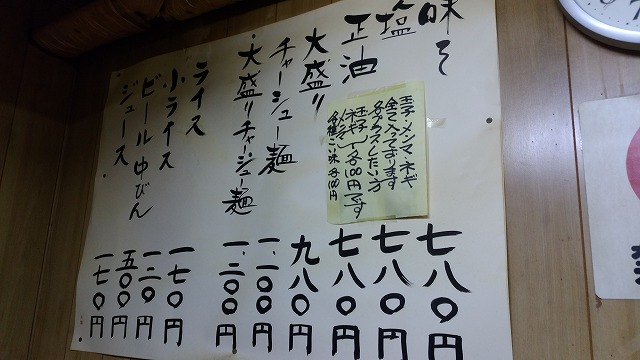 味そ 七八〇円
塩 七八〇円
正油 七八〇円
大盛り 九八〇円
チャーシュー麺 一、一〇〇円
・大盛りチャーシュー麺 一、三〇〇円
ライス 一七〇円
小ライス 一三〇円
ビール中びん 五〇〇円
ジュース 一七〇円
玉子・メンマ ネギ
全て入っております
各プラスしたい方
玉子
ネギ 各100円です
メンマ
各種こい味 各100円